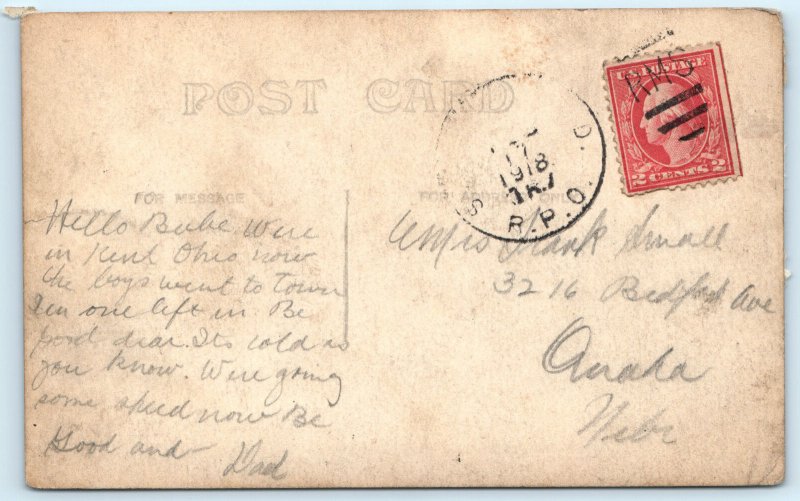 POST CARD
FOR MESSAGE
FOR ADDRESS ONLY
U.S. POSTAGE
2 CENTS 2
RMS
17
1918
R.P.O.
Hello Babe Were
in Kent Ohio now
the boys went to Town
Im one left in. Be
good dear. Its cold as
you know. Were going
some speed now Be
Good and
Dad
Mrs Frank Small
3216 Bedford Ave
Omaha
Nebr